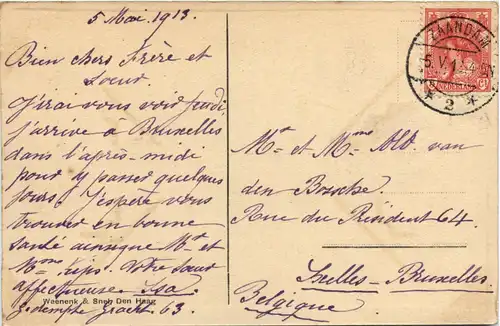 5 Mai. 1913.
Bien chers Frère et
Soeur
J'irai vous voir jeudi,
j'arrive à Bruxelles
dans l'après-midi
pour y passer quelques
jours. J'espère vous
trouver en bonne
santé ainsi que Mr et
Mme Votre soeur
affectueuse Isa
gracht 63.
Waenenk & Snel, Den Haag
ZAANDAM
5.V.1
* 2 *
Mr et Mme Ald. van
den Broecke.
Rue du Président 64.
Ixelles - Bruxelles.
Belgique.